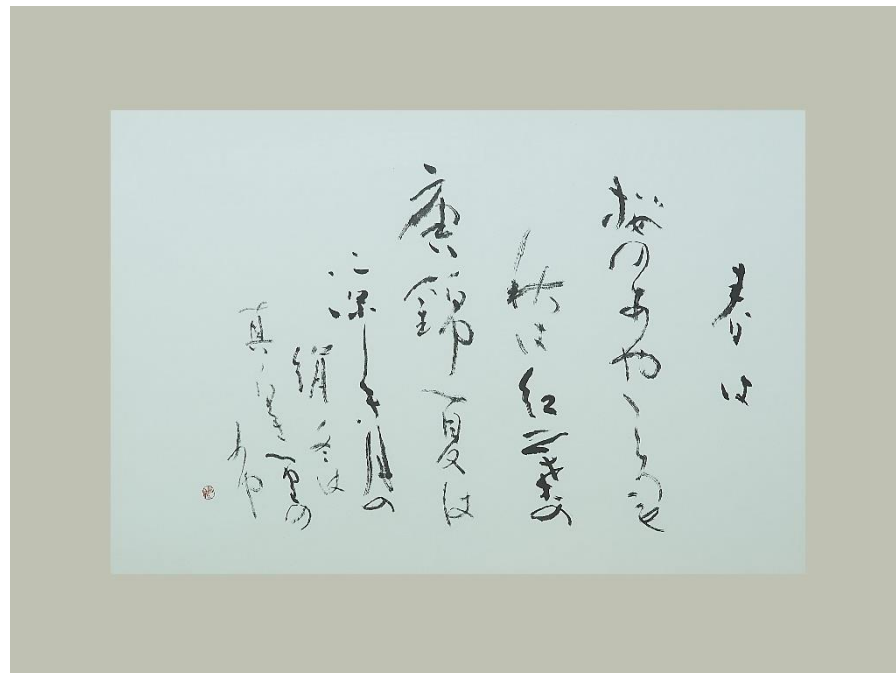 春は
桜のあや
秋は紅葉の
唐錦夏は
涼しき月の
絹冬は
真白き雪の